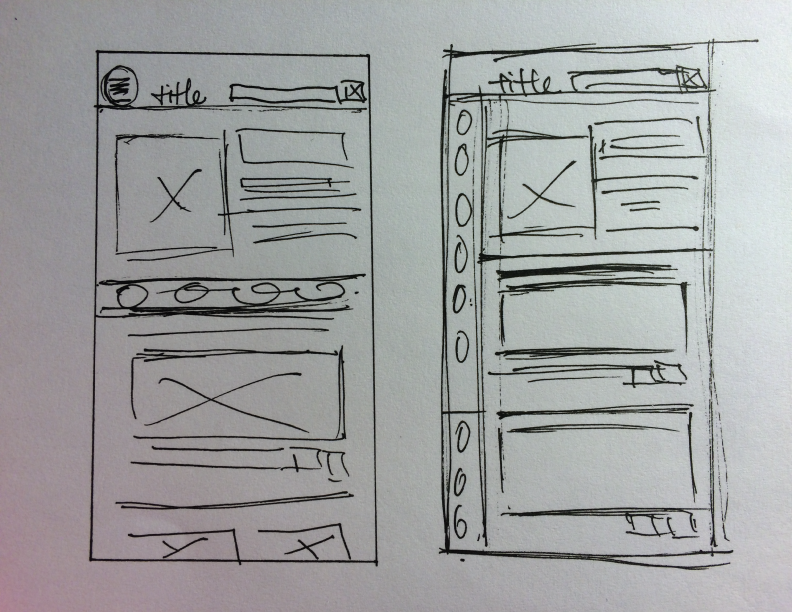 title
title